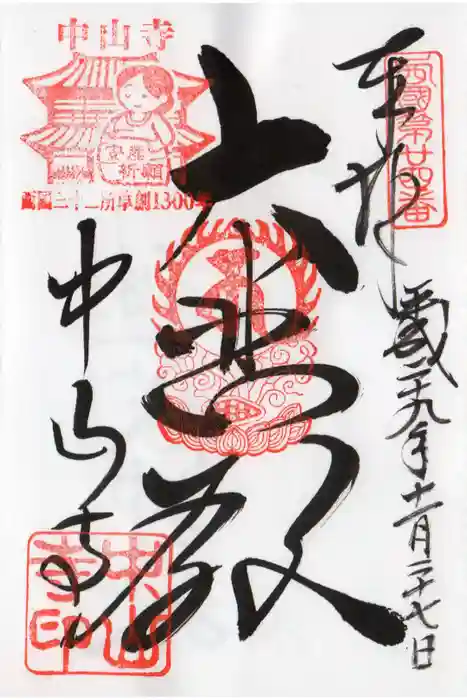 西國第廿四番
奉拝
平成二十九年十一月二十七日
大悲殿
中山寺
安産
祈願
西國三十三所草創1300年
中山寺
中山寺印